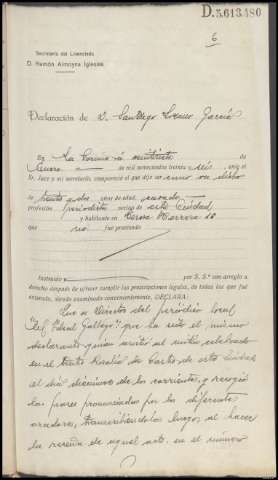 D.5.613.480
6
Secretaría del Licenciado
D. Ramón Almoyna Iglesias
Declaración de D. Santiago García
En La Coruña a veintisiete de
Enero de mil novecientos treinta y seis, ante el
Sr. Juez y mi secretario, compareció el que dijo
de treinta y ocho años de edad, casado
profesión periodista vecino de esta Ciudad
y habitante en Herrera 10
que no fué procesado
Instruído por S. Sª con arreglo a
derecho después de jurar cumplir las prescripciones legales, de todas las que fué
enterado, siendo examinado convenientemente, DECLARA:
Que es Director del periódico local
"El Ideal Gallego" que ha sido el mismo
declarante quien asistió al mitin celebrado
en el Teatro Rosalía de Castro de esta Ciudad
el día diecinueve de los corrientes, y recogió
las frases pronunciadas por los diferentes
oradores, transcribiéndolas luego, al hacer
la reseña de aquel acto, en el número